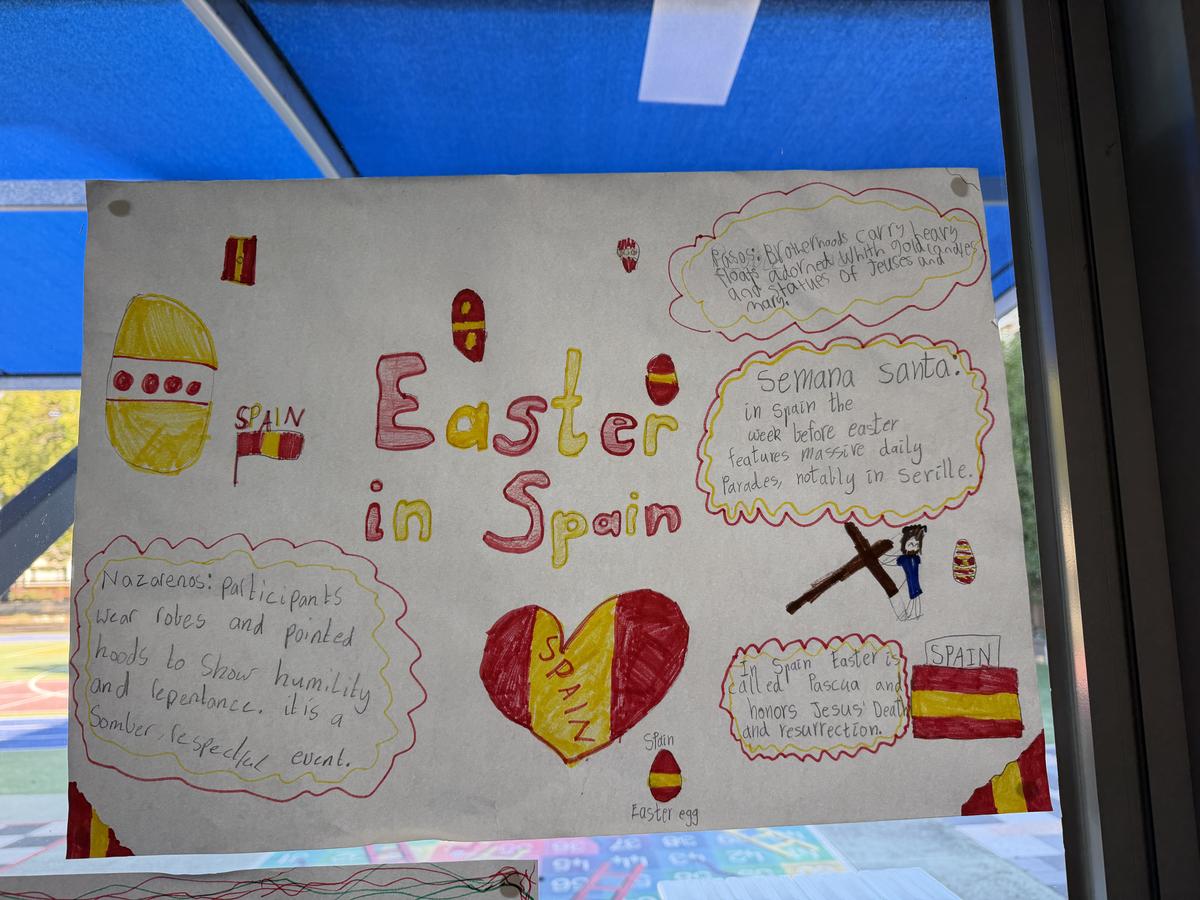 Pasos: Brotherhoods carry heavy
floats adorned whith gold candles
and statues of Jeuses and
mary.
SPAIN
Easter
in Spain
Semana santa:
in Spain the
week before easter
features massive daily
Parades, notably in Serille.
Nazarenos: participants
wear robes and pointed
hoods to show humility
and repentance. it is a
Somber, respectful event.
SPAIN
In Spain Easter is
called Pascua and
honors Jesus' Death
and resurrection.
SPAIN
Spain
Easter egg
38